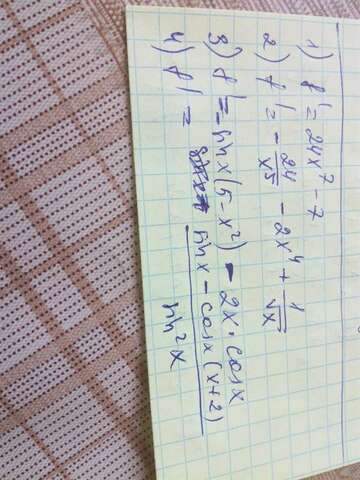 1) f' = 24x⁷ - 7
2) f' = - 24/x⁵ - 2x⁴ + 1/√x
3) f' = sin x (5 - x²) - 2x · cos x
4) f' = (sin x - cos x (x + 2)) / sin² x